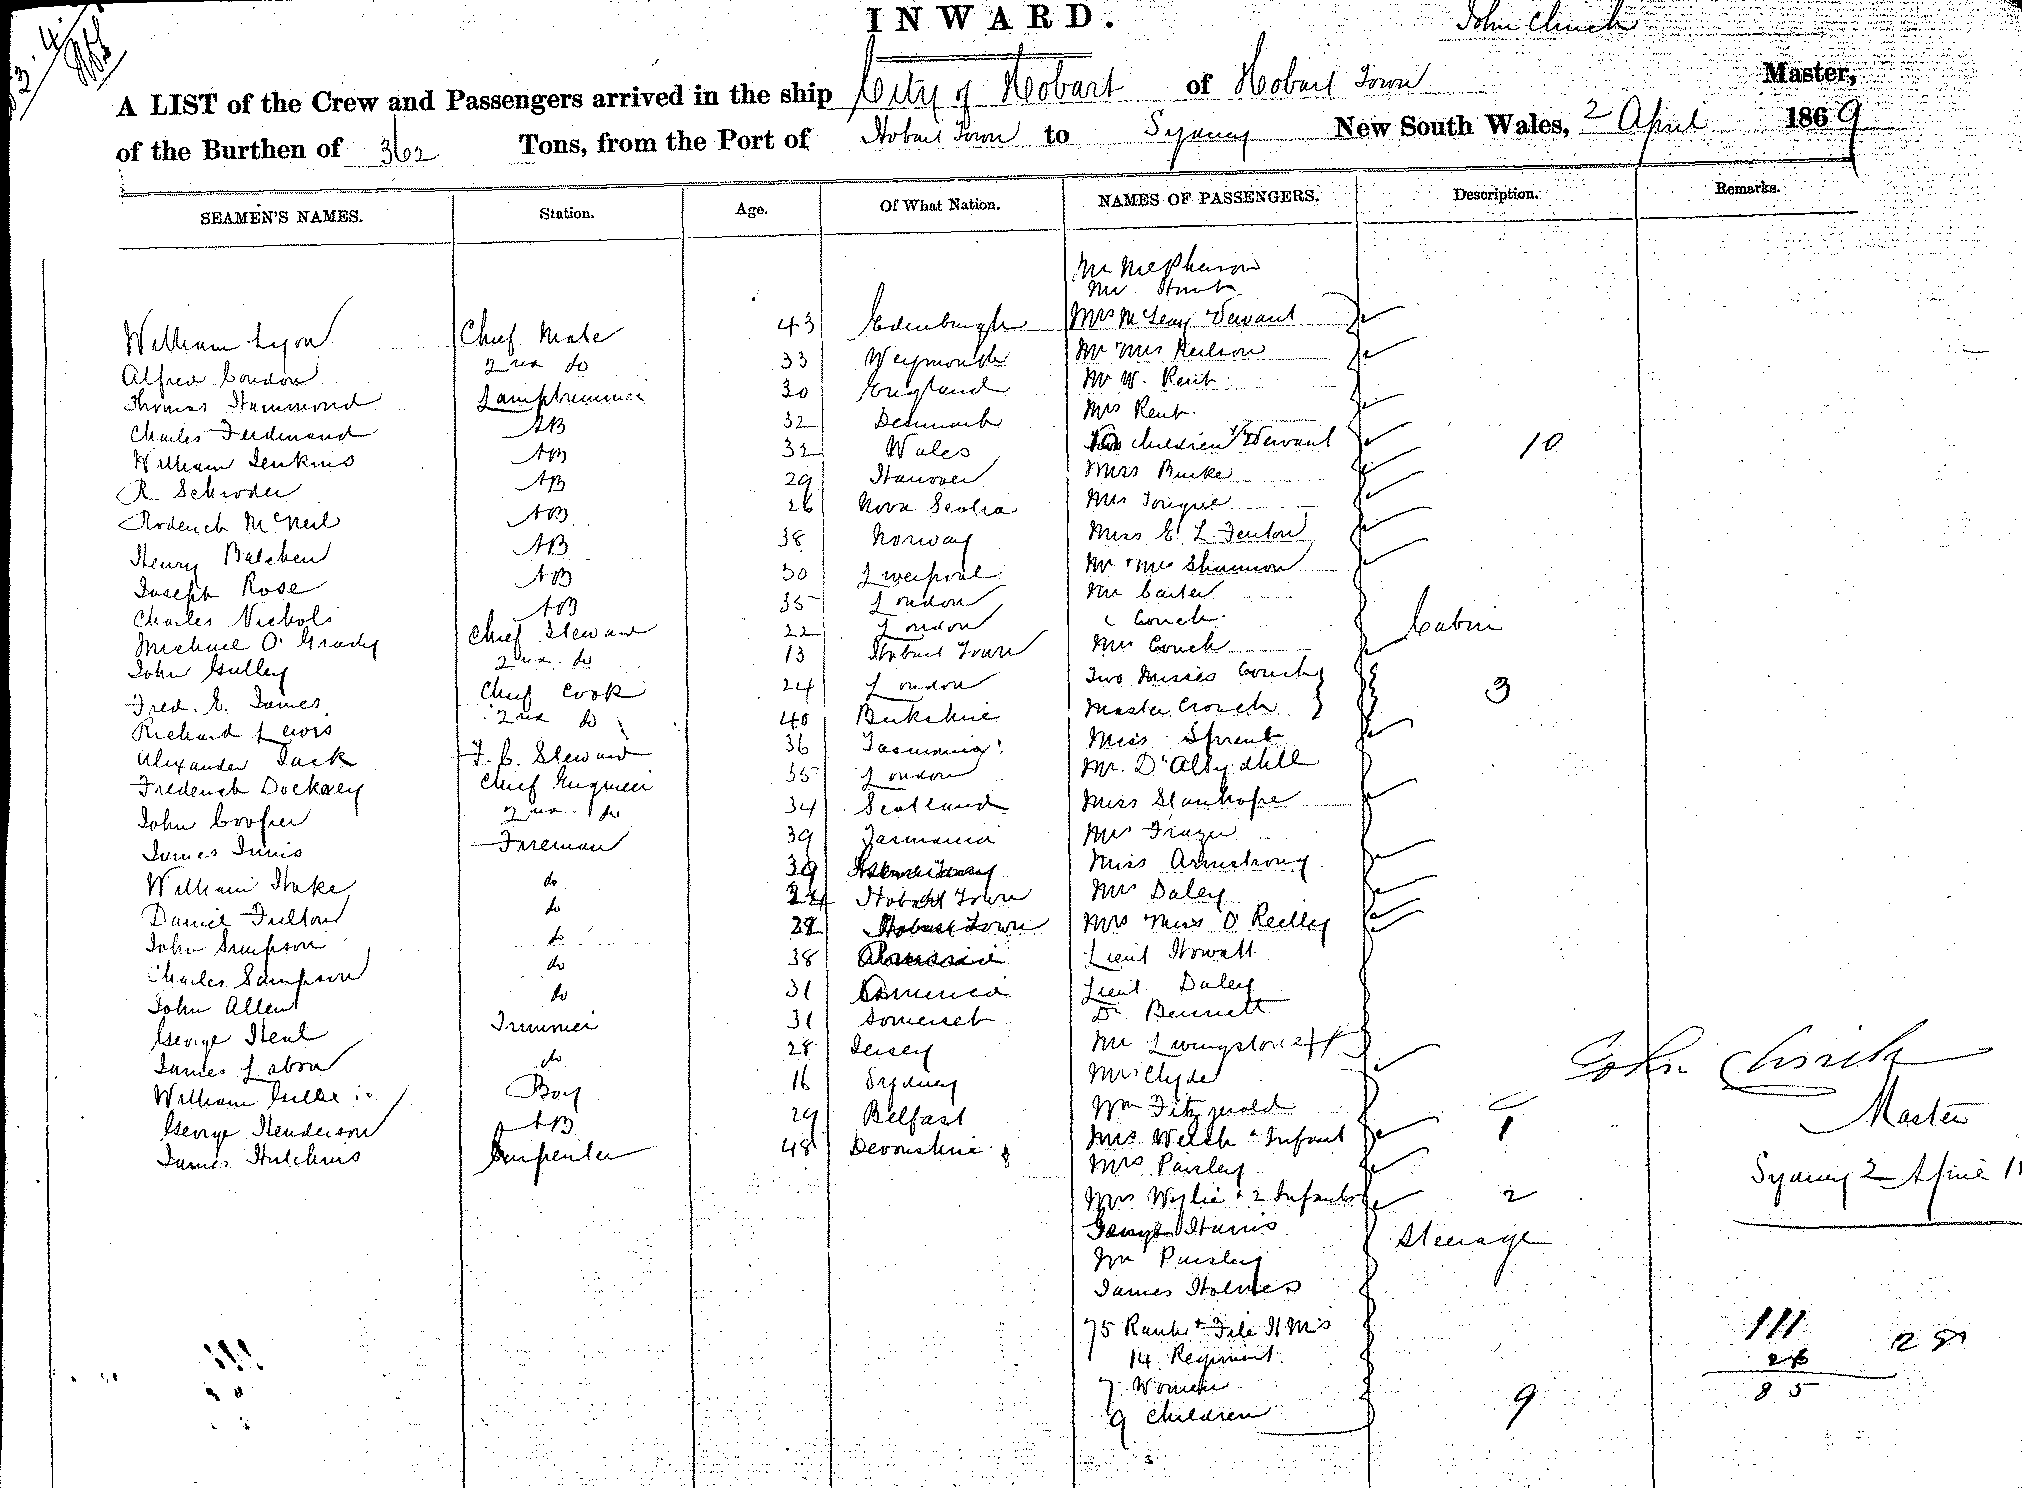 INWARD.
John Clinch
A LIST of the Crew and Passengers arrived in the ship City of Hobart of Hobart Town Master,
of the Burthen of 362 Tons, from the Port of Hobart Town to Sydney New South Wales, 2 April 1869
SEAMEN'S NAMES. Station. Age. Of What Nation. NAMES OF PASSENGERS. Description. Remarks.
Mr McPherson
Mr
William Lyon Chief Mate 43 Edinburgh Mrs Servant
Alfred Condon 2nd do 33 Weymouth Mr Mrs Neilson
Thomas Hammond Lamptrimmer 30 England Mr W. Kent
Charles Ferdinand AB 32 Denmark Mrs Kent
William Jenkins AB 32 Wales children Servant 10
R Schroder AB 29 Hanover Miss Burke
Roderick McNeil AB 26 Nova Scotia Mrs
Henry Balchen AB 38 Norway Miss E L Fenton
Joseph Rose AB 30 Liverpool Mr Mrs Shannon
Charles Nichols AB 35 London Mr Carter
Michael O'Grady Chief Steward 22 London " Couch
John Gulley 2nd do 13 Hobart Town Mrs Couch Cabin
Fred. E. James Chief Cook 24 London Two Misses Couch
Richard Lewis 2nd do 40 Berkshire Master Crouch 3
Alexander Jack F. C. Steward 36 Tasmania Miss Sprent
Frederick Dockrey Chief Engineer 35 London Mr.
John Cooper 2nd do 34 Scotland Miss Stanhope
James Innis Fireman 39 Tasmania Mr Frazer
William Hake do 39 Miss Armstrong
Daniel Fulton do 24 Hobart Town Mrs Daley
John Simpson do 22 Hobart Town Mrs Miss O'Reilly
Charles Sampson do 38 Lieut Howatt
John Allen do 31 America Lieut Daley
George Heal Trimmer 31 Somerset Dr Bennett
James Labon do 28 Jersey Mr Livingstone
William Boy 16 Sydney Mrs Clyde
George Henderson AB 29 Belfast Wm Fitzgerald
James Hutchins Carpenter 48 Devonshire Mrs Welsh & Infant 1
Mrs Paisley
Mrs Wylie & 2 Infants 2
George Harris
Wm Paisley Steerage
James Holmes
75 Rank & File H Ms
14 Regiment
7 Women
9 Children 9
John Clinch
Master
Sydney 2 April
111
26
85